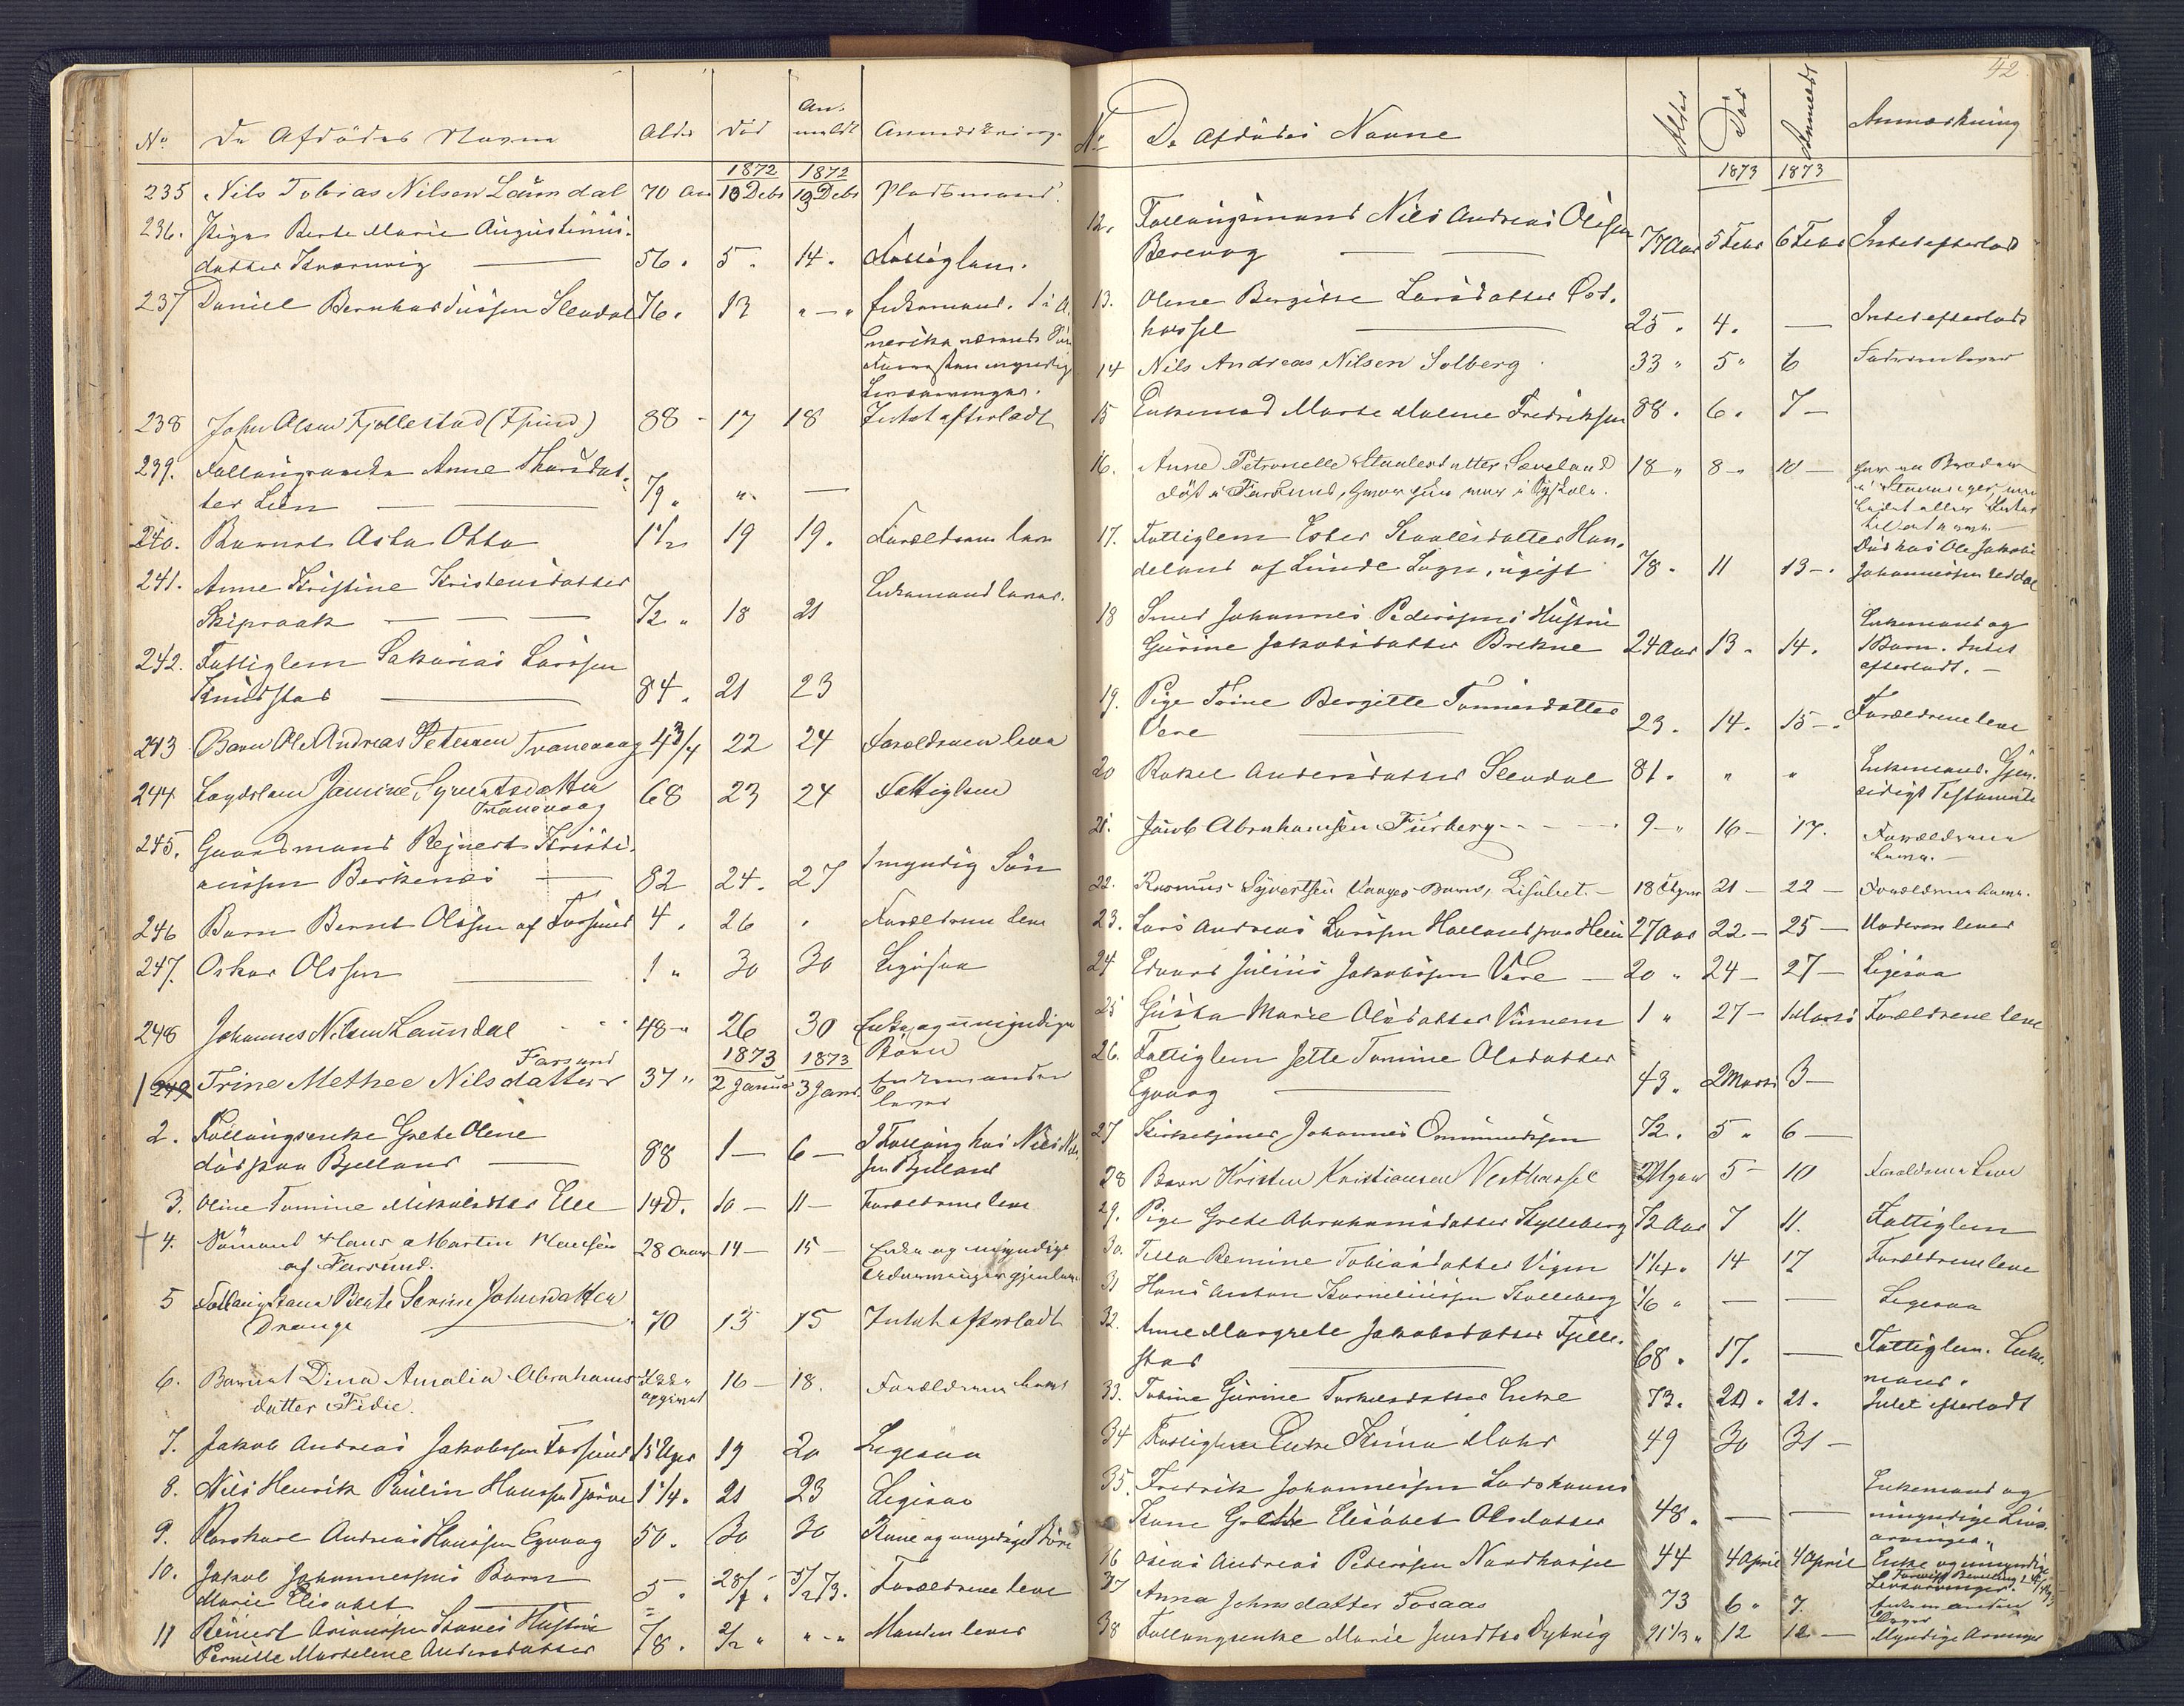 No De Afdødes Navne Alder Død Anmeldt Anmærkning
1872 1872
235 Nils Tobias Nilsen Laundal 70 Aar 13 Debr Debr Pladsmand.
236. Pige Berte Marie Augustinus-
datter Kværnvig 56. 5. 14. Fattiglem.
237 Daniel Bernhardussen Slevdal 76. 13 "—" Enkemand. I A-
merika
Livsarvinger.
238 John Olsen Fjellestad 88 - 17 18 Intet efterladt
239. Follaugsenke Anne
ter Lien 79 " " —
240. Barnet Asta Otto 1 1/2 19 19. Forældrene leve
241. Anne Kristine Kristensdatter
Skipraak 72 " 18 21 Enkemand lever.
242. Fattiglem Sakarias Larssen
Knudstad 84. 21 23
243 Barn Ole Andreas Petersen Tranevaag 4 3/4 22 24 Forældrene leve
244 Lægdslem Jamine Syvertsdatter
Tranevaag 68 23 24 Fattiglem
245. Gaardmand Rejnert Kristi-
anssen Birkenes 82 24. 27 1 myndig Søn
246 Barn Bernt Olssen af Farsund 4 . 26 . Forældrene leve
247. Oskar Olssen 1 " 30 30 Ligesaa
248 Johannes Nilsen Laundal 48 " 26 30 Enke og umyndige
Børn
1873 1873
Farsund
1 249 Trine Methee Nilsdatter 37 " 2 Januar 3 Janr Enkemanden
lever
2. Follaugsenke Grete Oline
død paa Bjelland 88 1 — 6 — I Follaug hos Nils Nil-
sen Bjelland
3. Oline Tomine Mikalsdtter Elle 14 D. 10 — 11 — Forældrene leve
4. Sømand Hans Martin Hansen
af Farsund. 28 Aar 14 — 15 — Enke og myndige
5 Follaugskone Berte Serine Johnsdatter
Drange 70 13 15 Intet efterladt
6. Barnet Dina Amalia Abrahams-
datter Fidie. Ikke
opgivet 16 — 18. Forældrene leve
7. Jakob Andreas Jakobssen Farsund 15 Uger 19 20 Ligesaa
8. Nils Henrik Paulin Hanssen Tjørve 1 1/4. 21 23 Ligesaa
9. Andreas Hanssen Egvaag 50. 30 30 Kone og umyndige Børn
10. Jakob Johannessens Barn
Marie Elisabet 5 " 28/1 " 3/2 73. Forældrene leve
11 Reinert Hustru
Pernille Martelene Andersdatter 78. 2/2 " "-" Manden lever
42
No De Afdødes Navne Alder Død Anmeldt Anmærkning
1873 1873
12. Follaugsmand Nils Andreas Olessen
Berevog 77 Aar 5 Febr 6 Febr Intet efterlod
13. Oline Bergitte Larsdatter Øst-
hassel 25. 4. — Intet efterladt
14 Nils Andreas Nilsen Solberg 33 " 5 " 6 Faderen lever
15 Enkemad Marte Malene Fredriksen 88. 6. 7 —
16. Anne Petronelle Staalesdatter Sæveland
død i Farsund, hvor hun var i Syskole. 18 " 8 — 10 — har en Broder
17. Fattiglem Ester Staalesdatter Han-
deland af Lunde Sogn, ugift 78. 11 13 —. Død hos Ole Jakob
Johannessen
18 Smed Johannes Pederssens Hustru
Gurine Jakobsdatter Brekne 24 Aar 13. 14. Enkemand og
1 Barn. Intet
efterladt. —
19. Pige Trine Bergitte Tønnesdatter
Vere 23. 14. 15 —. Forældrene leve
20 Rakel Andersdatter Slevdal 81. " " Enkemand. Gjen-
sidigt Testamente
21. Jacob Abrahamsen Furberg 9 — " 16 — 17. Forældrene
leve. —
22. Rasmus Syvertsen Vaages Barn, Lisabet — 18 Uger 21 — 22 — Forældrene leve.
23. Lars Andreas Larssen 27 Aar 22 — 25 — Moderen lever
24 Edvard Julius Jakobssen Vere 20 " 24 — 27 — Ligesaa
25 Gusta Marie Olsdatter Vinnem 1 " 27 — 1 Marts Forældrene leve
26. Fattiglem Jette Tomine Olsdatter
Egvaag 43. 2 Marts 3 —
27 Kirketjener Johannes Ommundssen 72. 5 " 6 —
28 Barn Kristen Kristiansen Vesthassel Uger 5 — 10 Forældrene leve
29. Pige Grete Abrahamsdatter Kylleberg 72 Aar 7 11. Fattiglem
30. Tella Remine Tobiasdatter Vigen 1 1/4. 14 17 Forældrene leve
31 Hans Anton Kornelinssen Kolleberg 1/6 " — — Ligesaa
32. Anne Margrete Jakobsdatter Fjelle-
stad 68. 17. — Fattiglem. Enke-
mand.
33. Tobine Gurine Torkelsdatter Enke 73. 20. 21. Intet efterladt
34 Fattiglem Enke Stina Mohr 49 30 31 —
35. Fredrik Johannessen Lodshavns
Kone Grethe Elisabet Olsdatter 48. — — Enkemand og
umyndige Livs-
arvinger.
36 Osias Andreas Pederssen Nordhassel 44 4 April 4 April Enke og umyndige
Livsarvinger.
37 Anna Johnsdatter Fosaas 73 6 " 7. Enkemanden
38 Follaugsenke Marie Dybvig 91 1/3 " 12 12 — Myndige Arvinger